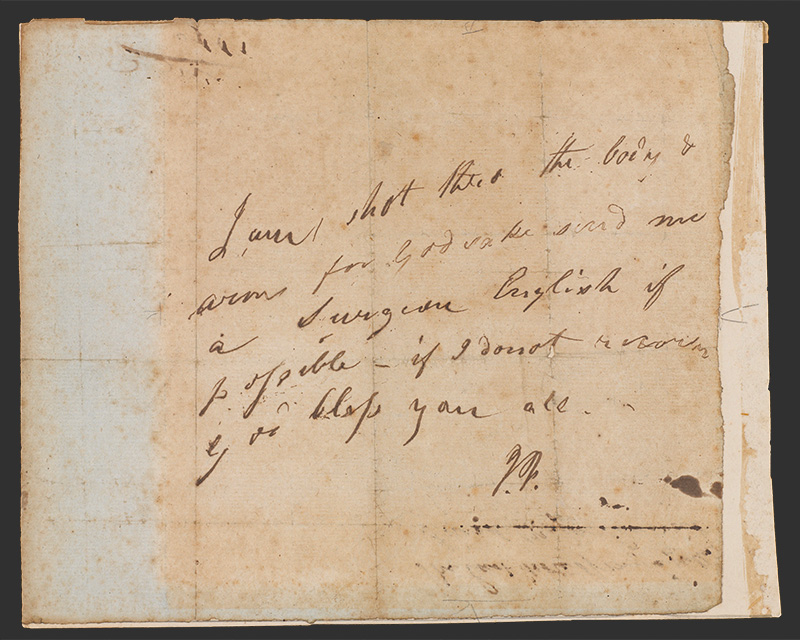 I am shot thro the body &
arms for God sake send me
a Surgeon English if
possible – if I do not recover
God bless you all.
J.P.